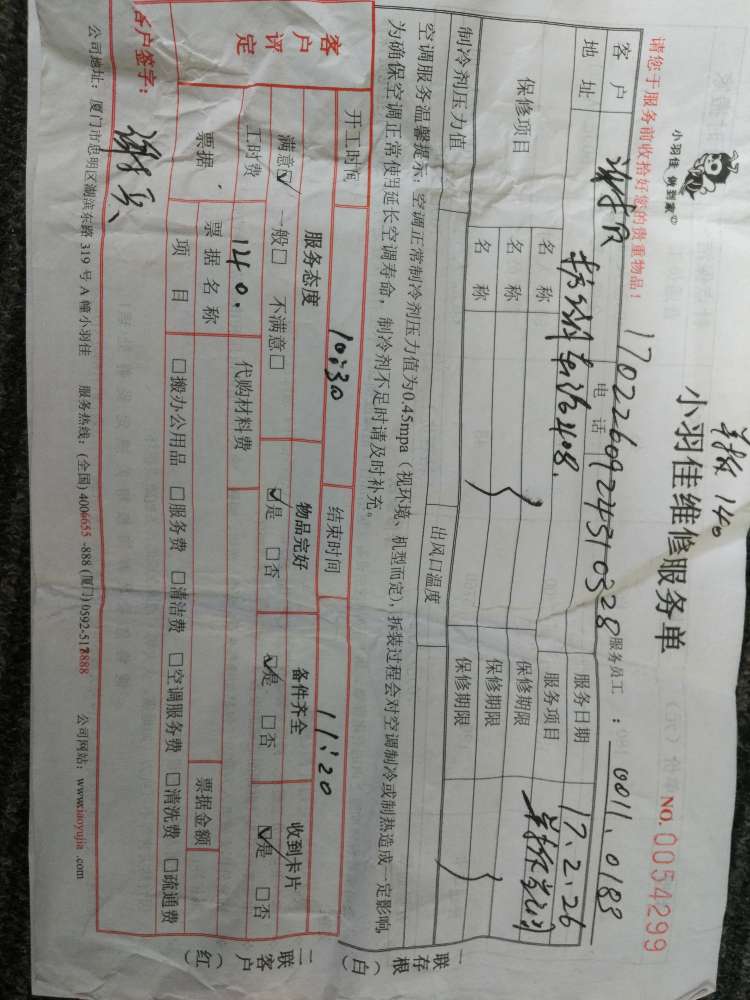 单板 140
小羽佳 做到家
小羽佳维修服务单
NO.0054299
请您于服务前收拾好您的贵重物品！
170226092431 0328
服务员工：0011.0188
客户
电话
服务日期 17.2.26
地址
408.
服务项目
保修项目
名称
保修期限
名称
保修期限
名称
保修期限
制冷剂压力值
出风口温度
空调服务温馨提示：空调正常制冷剂压力值为0.45mpa（视环境、机型而定），拆装过程会对空调制冷或制热造成一定影响，
为确保空调正常使用延长空调寿命，制冷剂不足时请及时补充。
一联存根（白）
二联客户（红）
开工时间 10:30 结束时间 11:20
客户评定
服务态度 物品完好 备件齐全 收到卡片
满意☑ 一般□ 不满意□ ☑是 □否 ☑是 □否 ☑是 □否
工时费 140. 代购材料费
票据 票据名称 票据金额
项目 □搬办公用品 □服务费 □清洁费 □空调服务费 □清洗费 □疏通费
客户签字：
公司地址：厦门市思明区湖滨东路 319 号 A 幢小羽佳 服务热线：(全国) 4006655 -888 (厦门) 0592-5178888 公司网站：www.xiaoyujia .com